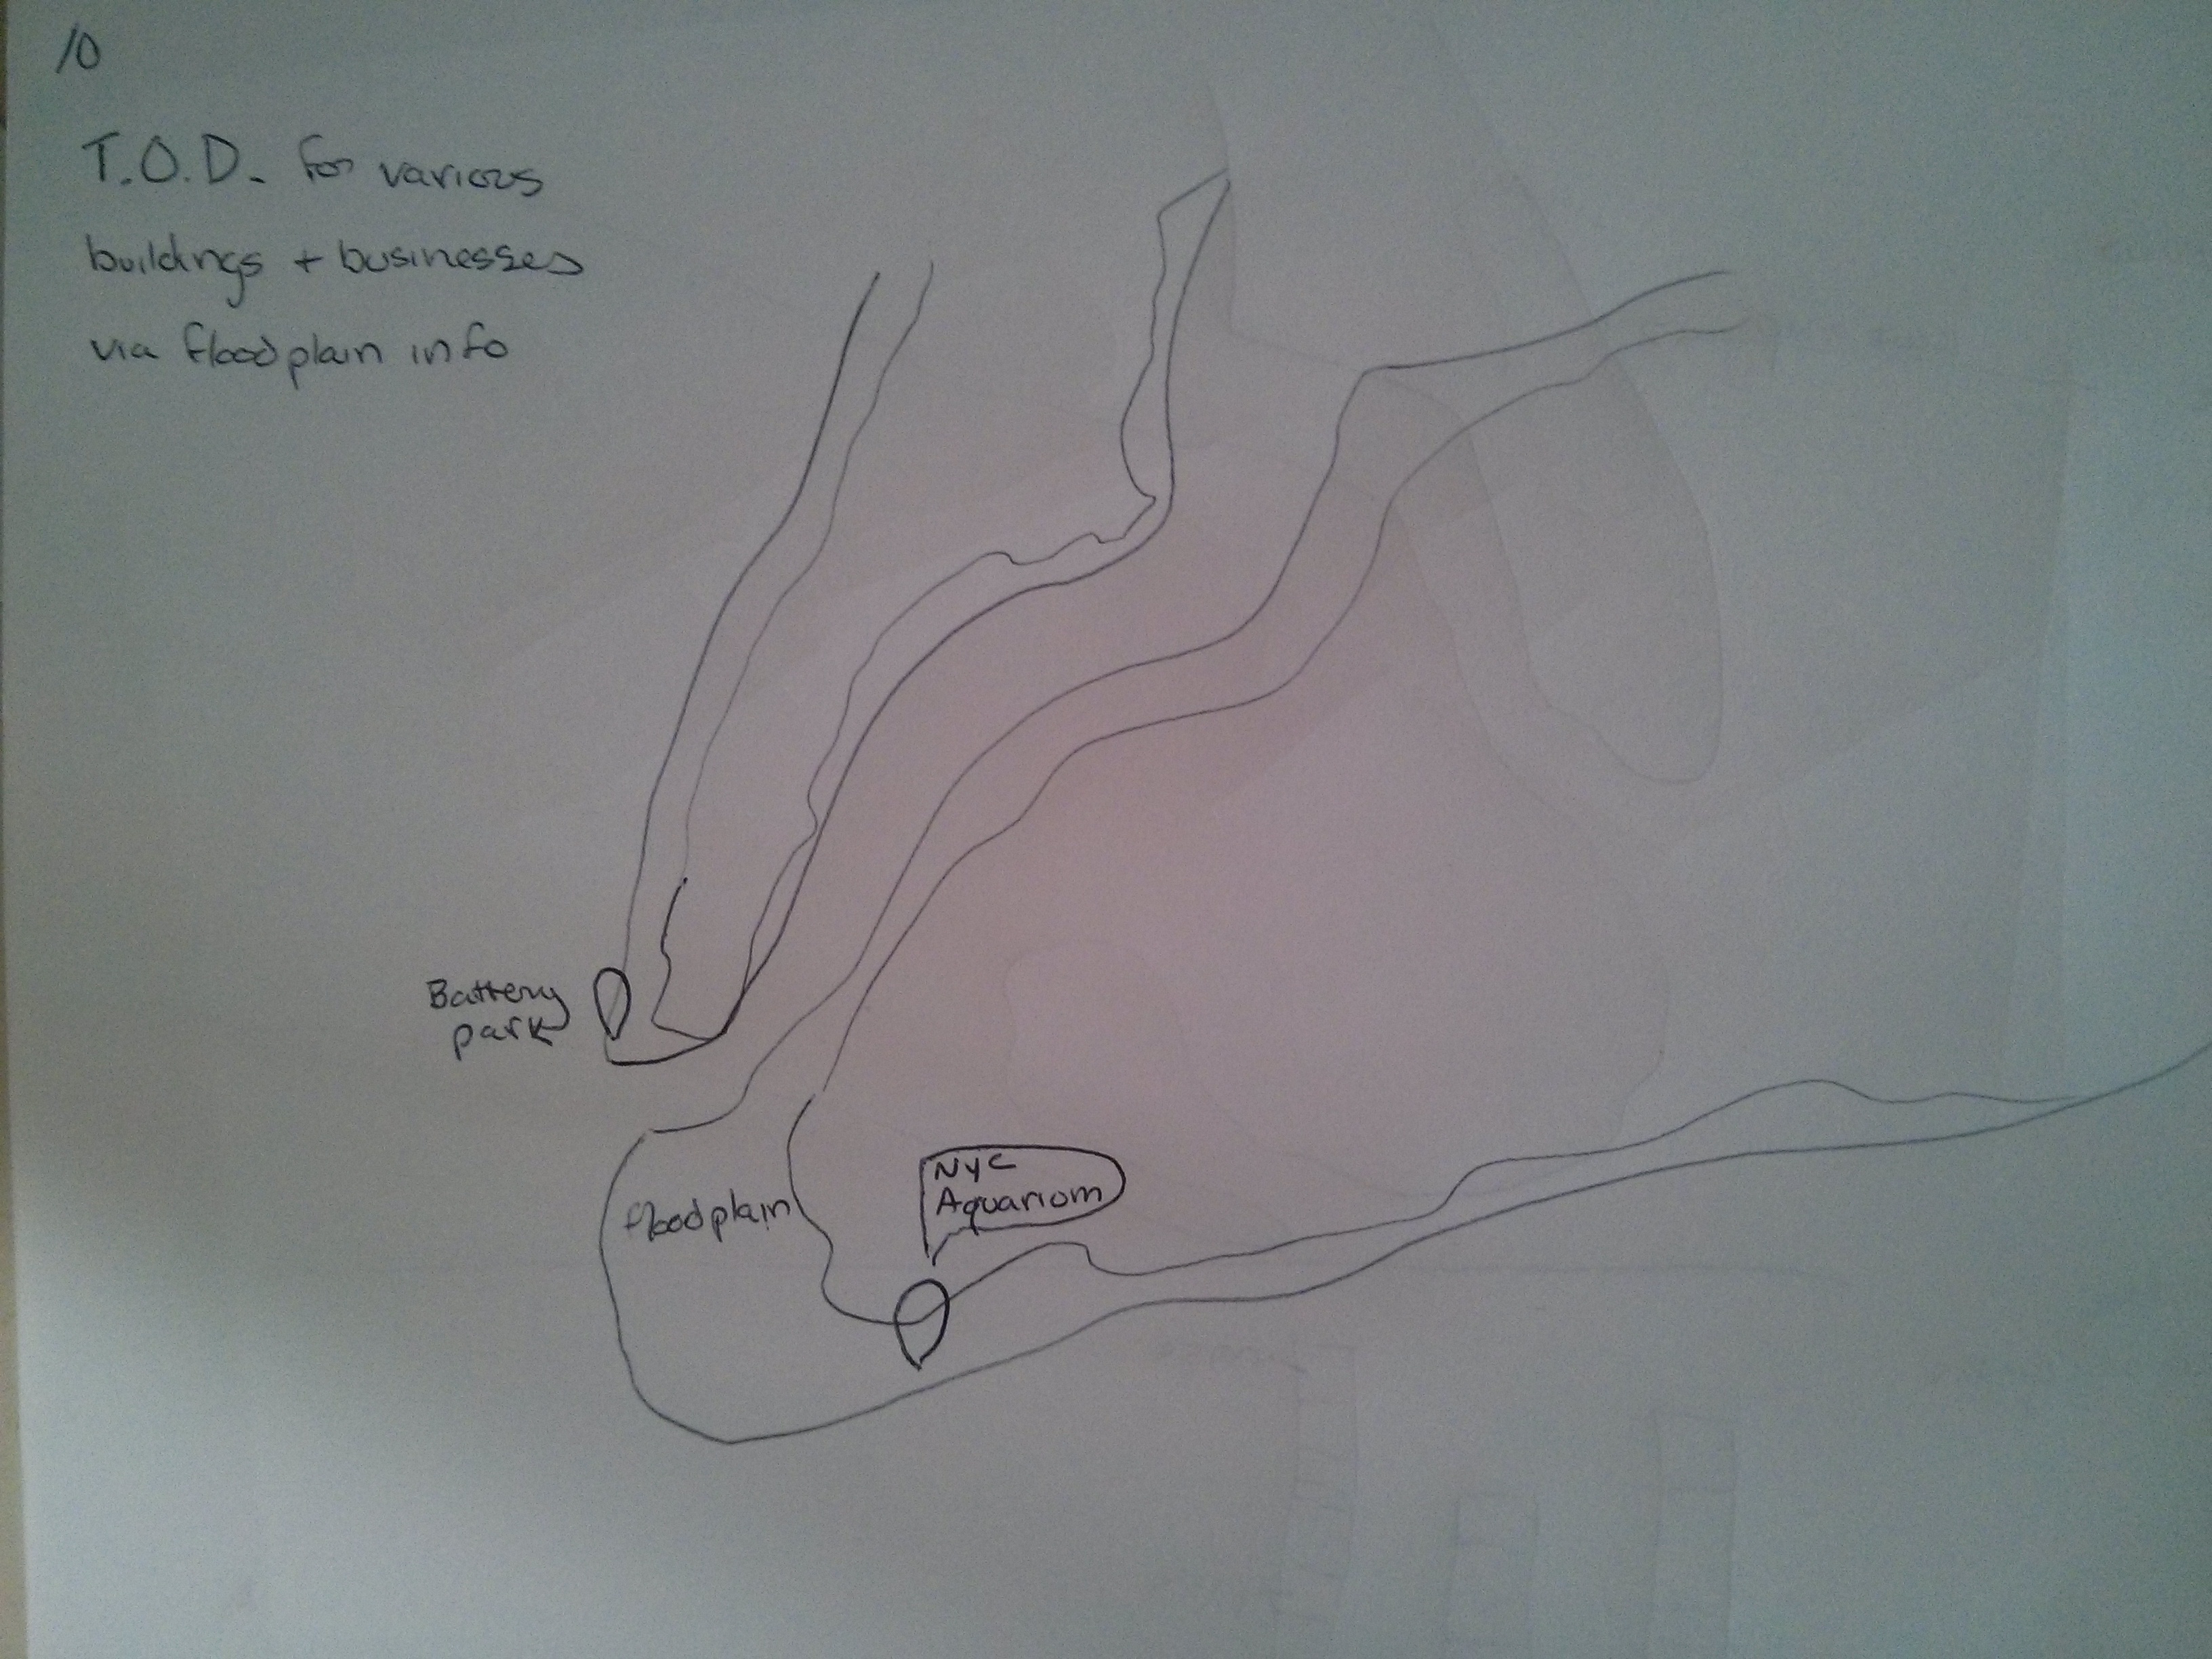 10
T.O.D. for various
buildings + businesses
via floodplain info
Battery
park
floodplain
NYC
Aquarium